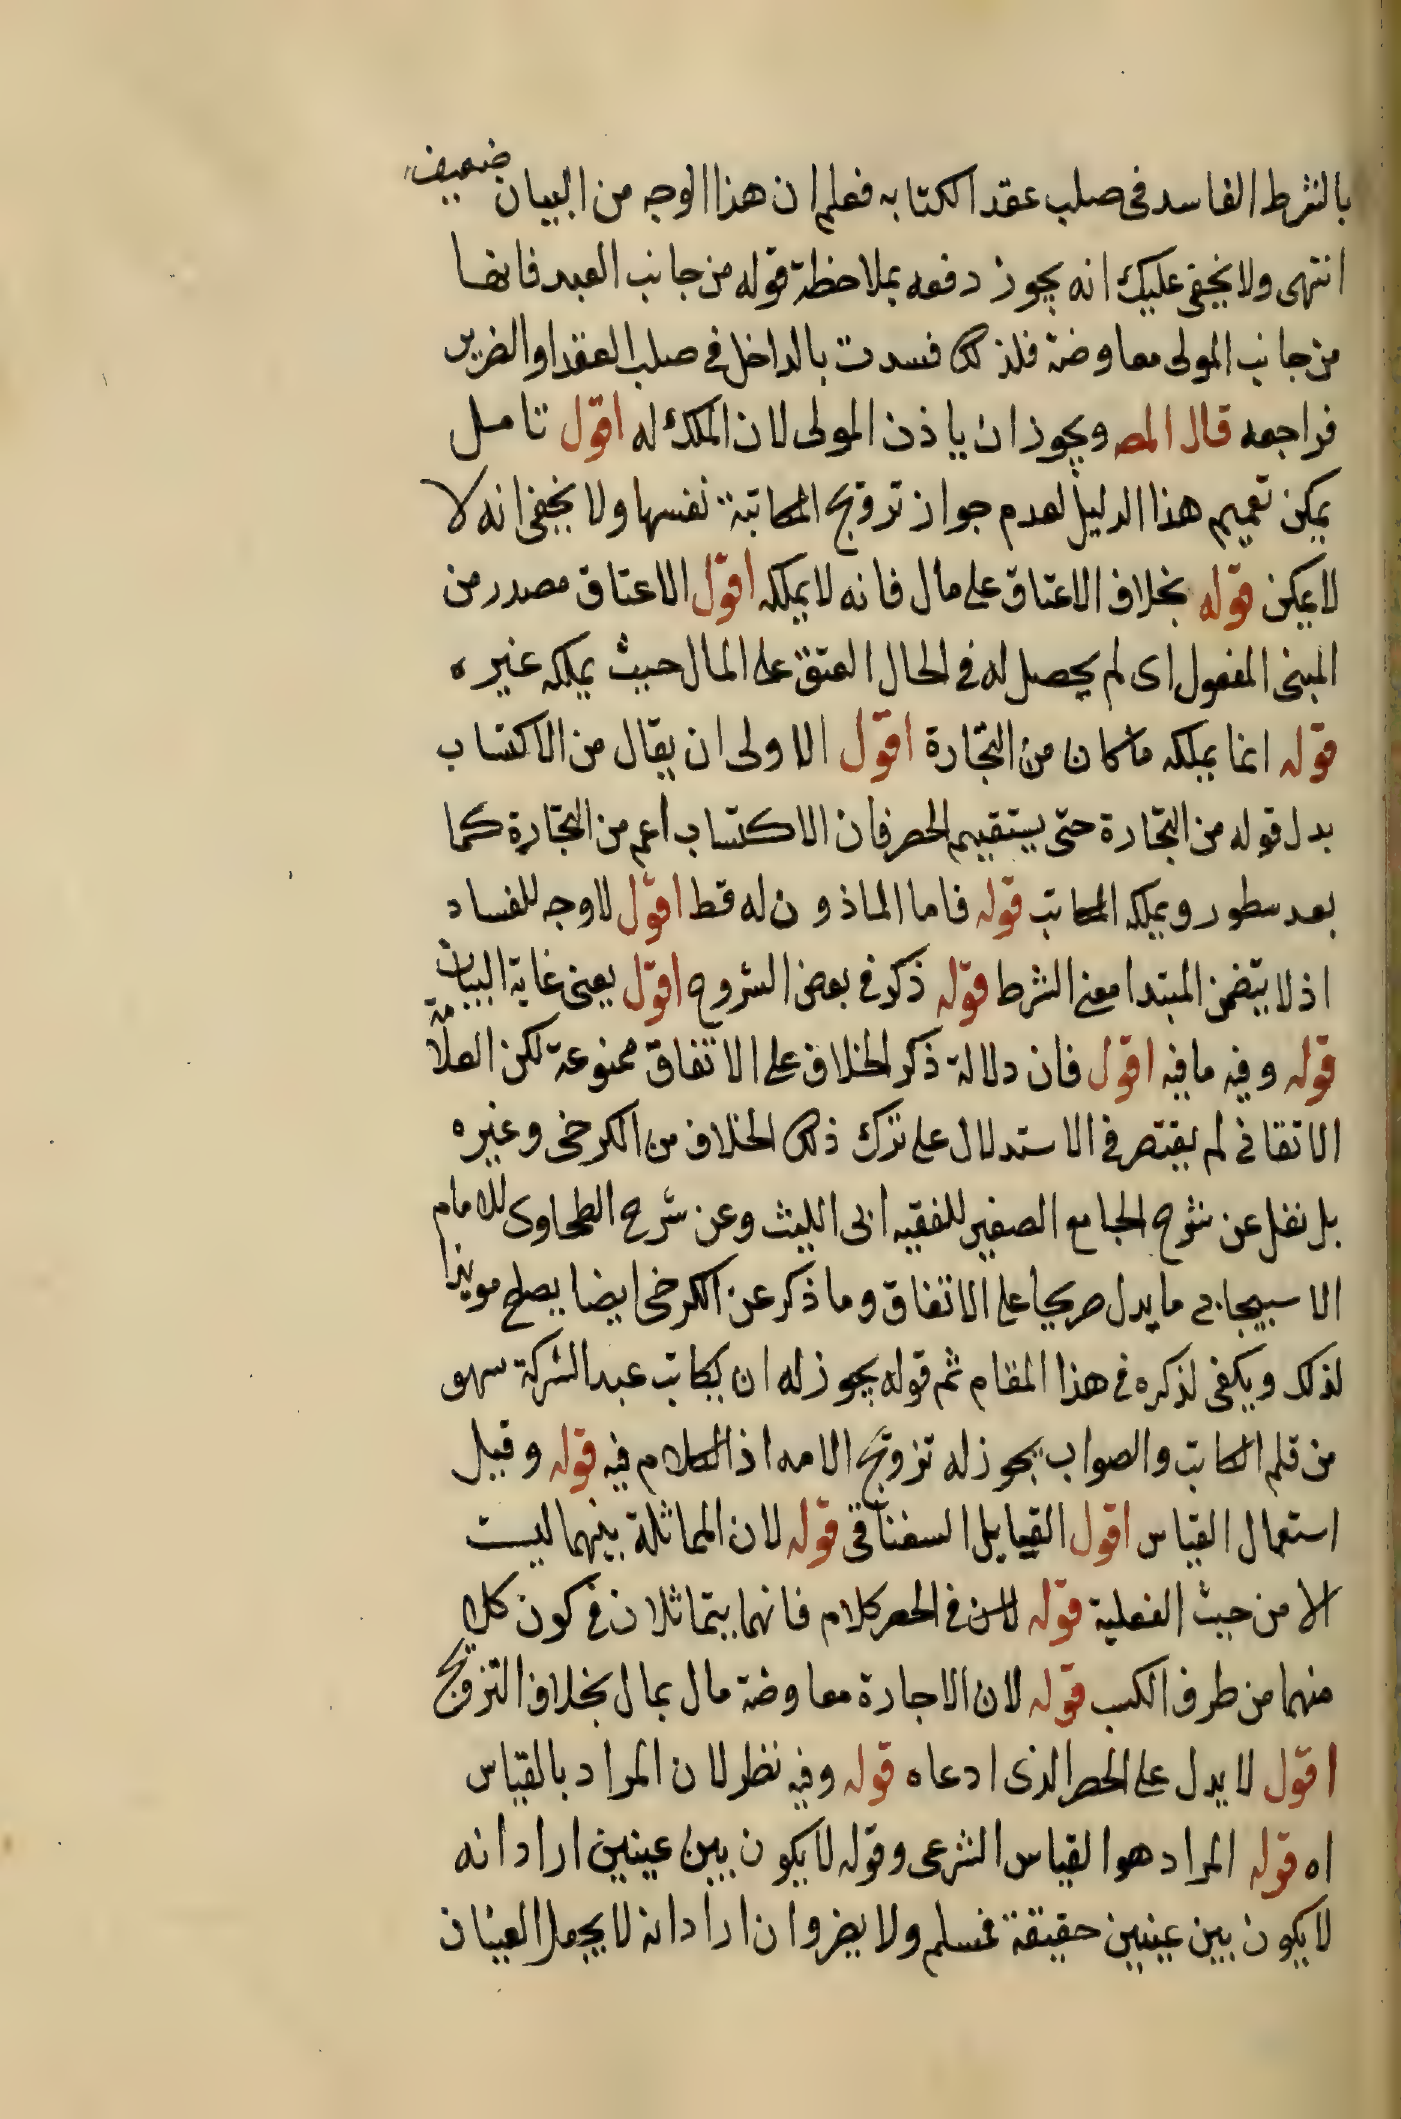 بالشرط الفاسد في صلب عقد الكتابه فعلم ان هذا الوجه من البيان ضعيف
انتهى ولا يخفى عليك انه يجوز دفعه بملاحظة قوله من جانب العبد فانها
من جانب المولى معاوضة فلذلك فسدت بالداخل في صلب العقد
فراجعه قال المص ويجوز ان ياذن المولى لان الملك له اقول تامل
يمكن تعميم هذا الدليل لعدم جواز تزوج المكاتبة نفسها ولا يخفى انه لا
لا يمكن قوله بخلاف الاعتاق على مال فانه لا يملكه اقول الاعتاق مصدر من
المبنى المفعول اى لم يحصل له في الحال العتق على المال حيث يملكه غيره
قوله انما يملكه ما كان من التجارة اقول الاولى ان يقال من الاكتساب
بدل قوله من التجارة حتى يستقيم الحصر فان الاكتساب اعم من التجارة كما
بعد سطور ويملكه المكاتب قوله فاما الماذون له قط اقول لا وجه للفساد
اذ لا يتضمن المبتدا معنى الشرط قوله ذكر في بعض الشروح اقول يعنى غاية البيان
قوله وفيه ما فيه اقول فان دلالة ذكر الخلاف على الاتفاق ممنوعة لكن العلامة
الاتقانى لم يقتصر في الاستدلال على ترك ذلك الخلاف من الكرخى وغيره
بل نقل عن شرح الجامع الصغير للفقيه ابى الليث وعن شرح الطحاوى للامام
الاسبيجابى ما يدل صريحا على الاتفاق وما ذكر عن الكرخى ايضا يصلح مويدا
لذلك ويكفى لذكره في هذا المقام ثم قوله يجوز له ان يكاتب عبد الشركة سهو
من قلم الكاتب والصواب يجوز له تزوج الامه اذ الكلام فيه قوله وقيل
استعمال القياس اقول القايل السغناقى قوله لان المماثلة بينهما ليست
الا من حيث الفعلية قوله في الحصر كلام فانهما يتماثلان في كون كل
منهما من طرف الكسب قوله لان الاجارة معاوضة مال بمال بخلاف التزوج
اقول لا يدل على الحصر الذى ادعاه قوله وفيه نظر لان المراد بالقياس
اه قوله المراد هو القياس الشرعى وقوله لا يكون بين عينين اراد انه
لا يكون بين عينين حقيقة فمسلم ولا يضر وان اراد انه لا يجعل العينان